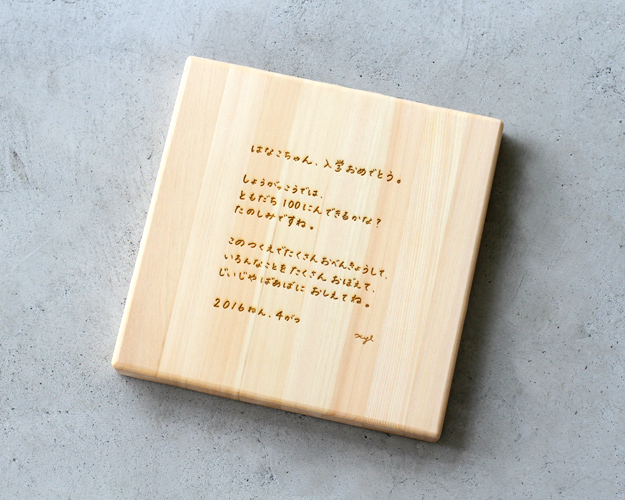 はなこちゃん、入学おめでとう。
しょうがっこうでは、
ともだち100にんできるかな?
たのしみですね。
このつくえでたくさんおべんきょうして、
いろんなことをたくさんおぼえて、
じいじやばあばにおしえてね。
2016ねん、4がつ
xyl